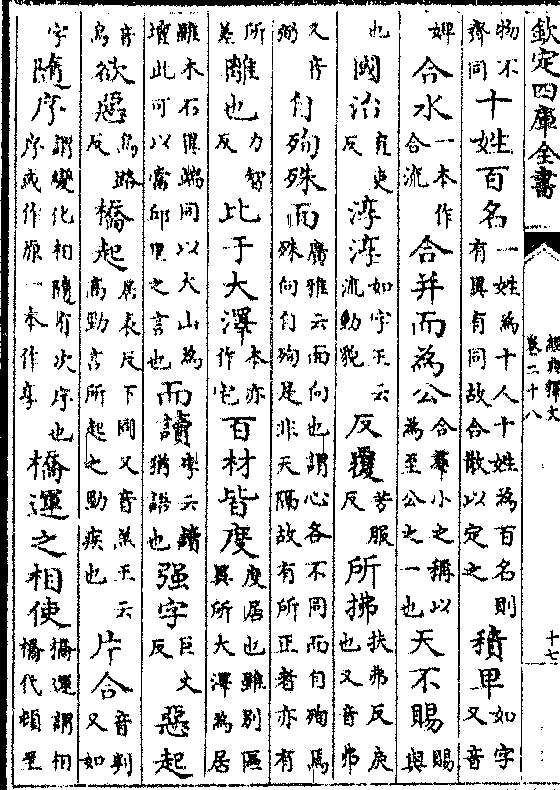 欽定四庫全書
經典釋文
卷二十八
十七
物不齊同十姓百名一姓為十人十姓為百名則有異有同故合散以定之積卑如字又音
婢合水一本作合流合并而為公合羣小之稱以為至公之一也天不賜賜與
也國治直吏反淳淳如字王云流動貌反覆芳服反所拂扶弗反戾也又音弗
又音弼自殉殊面廣雅云面向也謂心各不同而自殉焉殊向自殉是非天隔故有所正者亦有
所差離也力智反比于大澤本亦作宅百材皆度度居也雖別區異所大澤為居
雖木石異端同以大山為壇此可以當邱里之言也而讀李云讀猶語也强字巨丈反惡起
音烏欲惡烏路反橋起居表反下同又音羔王云高勁言所起之勁疾也片合音判又如
字隨序謂變化相隨有次序也序或作原一本作享橋運之相使橋運謂相橋代頓至